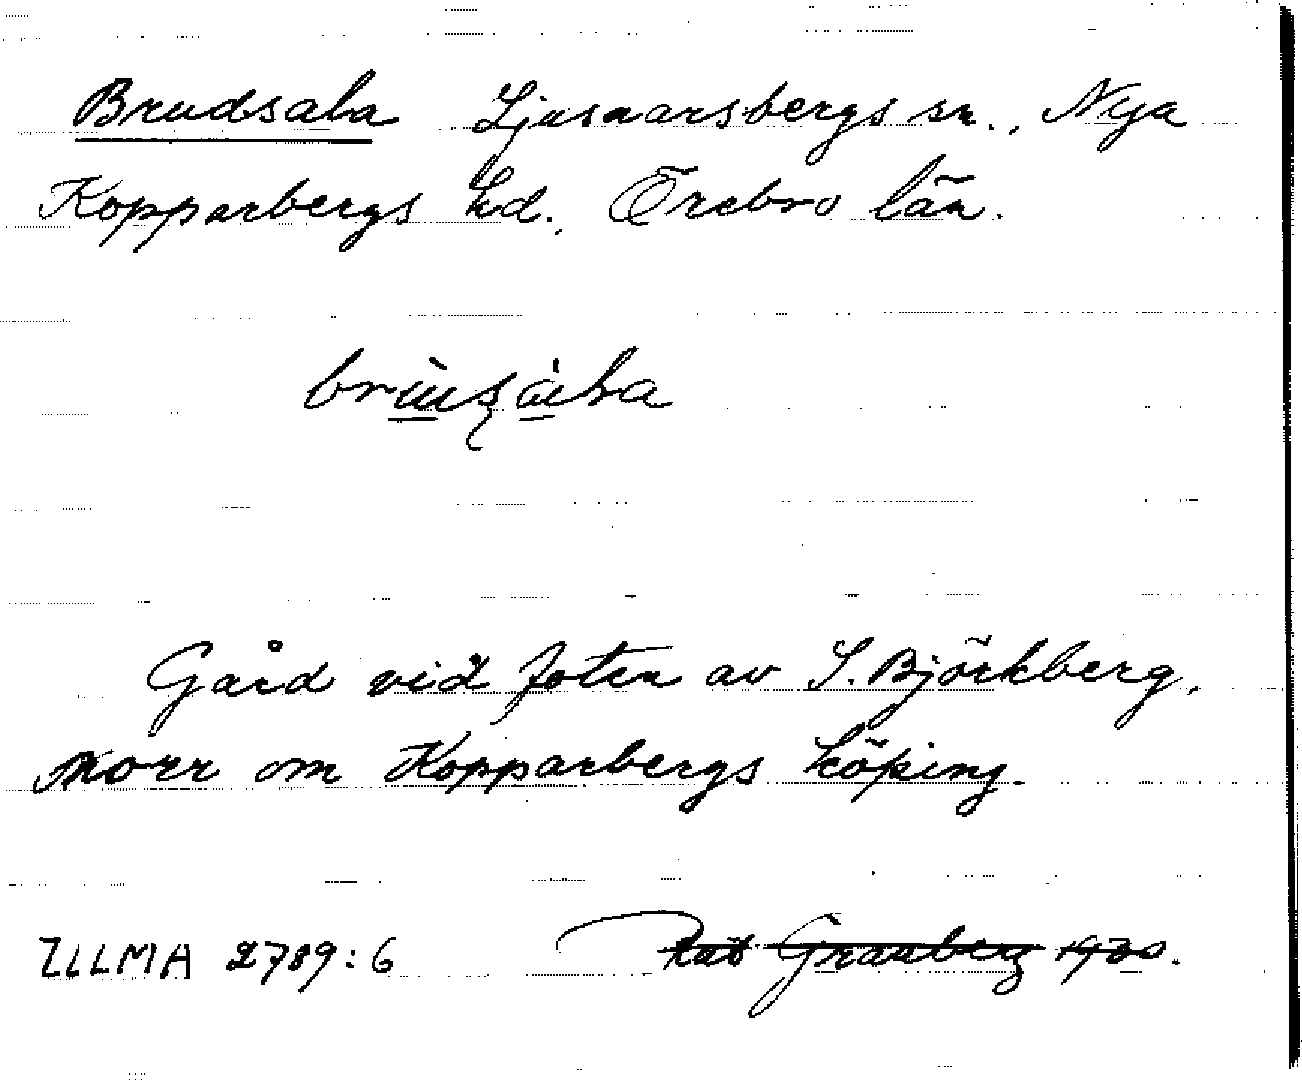 Brudsala Ljusnarsbergs sn., Nya
Kopparbergs hd., Örebro län.
Gård vid foten av S. Björkberg,
norr om Kopparbergs köping.
ULMA 2789:6 Granberg 1930.